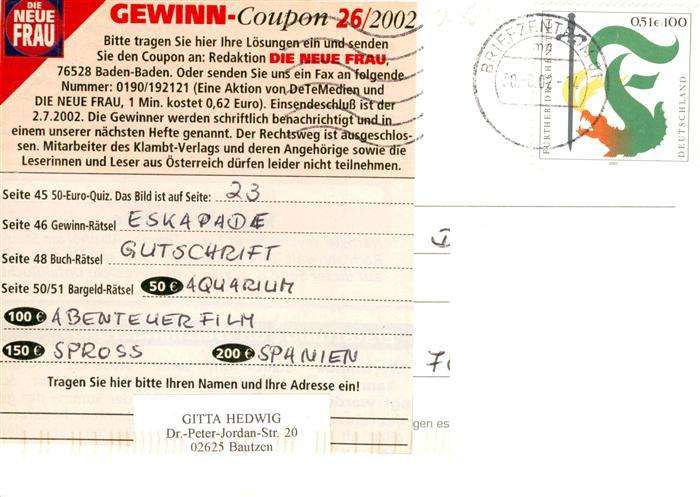 DIE
NEUE
FRAU
GEWINN-Coupon 26/2002
Bitte tragen Sie hier Ihre Lösungen ein und senden
Sie den Coupon an: Redaktion DIE NEUE FRAU,
76528 Baden-Baden. Oder senden Sie uns ein Fax an folgende
Nummer: 0190/192121 (Eine Aktion von DeTeMedien und
DIE NEUE FRAU, 1 Min. kostet 0,62 Euro). Einsendeschluß ist der
2.7.2002. Die Gewinner werden schriftlich benachrichtigt und in
einem unserer nächsten Hefte genannt. Der Rechtsweg ist ausgeschlos-
sen. Mitarbeiter des Klambt-Verlags und deren Angehörige sowie die
Leserinnen und Leser aus Österreich dürfen leider nicht teilnehmen.
Seite 45 50-Euro-Quiz. Das Bild ist auf Seite: 23
Seite 46 Gewinn-Rätsel ESKAPADE
Seite 48 Buch-Rätsel GUTSCHRIFT
Seite 50/51 Bargeld-Rätsel 50 € AQUARIUM
100 € ABENTEUERFILM
150 € SPROSS 200 € SPANIEN
Tragen Sie hier bitte Ihren Namen und Ihre Adresse ein!
GITTA HEDWIG
Dr.-Peter-Jordan-Str. 20
02625 Bautzen
gen es
BRIEFZENTRUM
0,51€ 100
DEUTSCHLAND